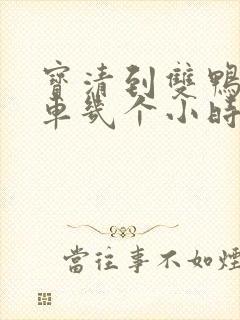 寶清到雙鴨
車幾个小時
當往事不如煙